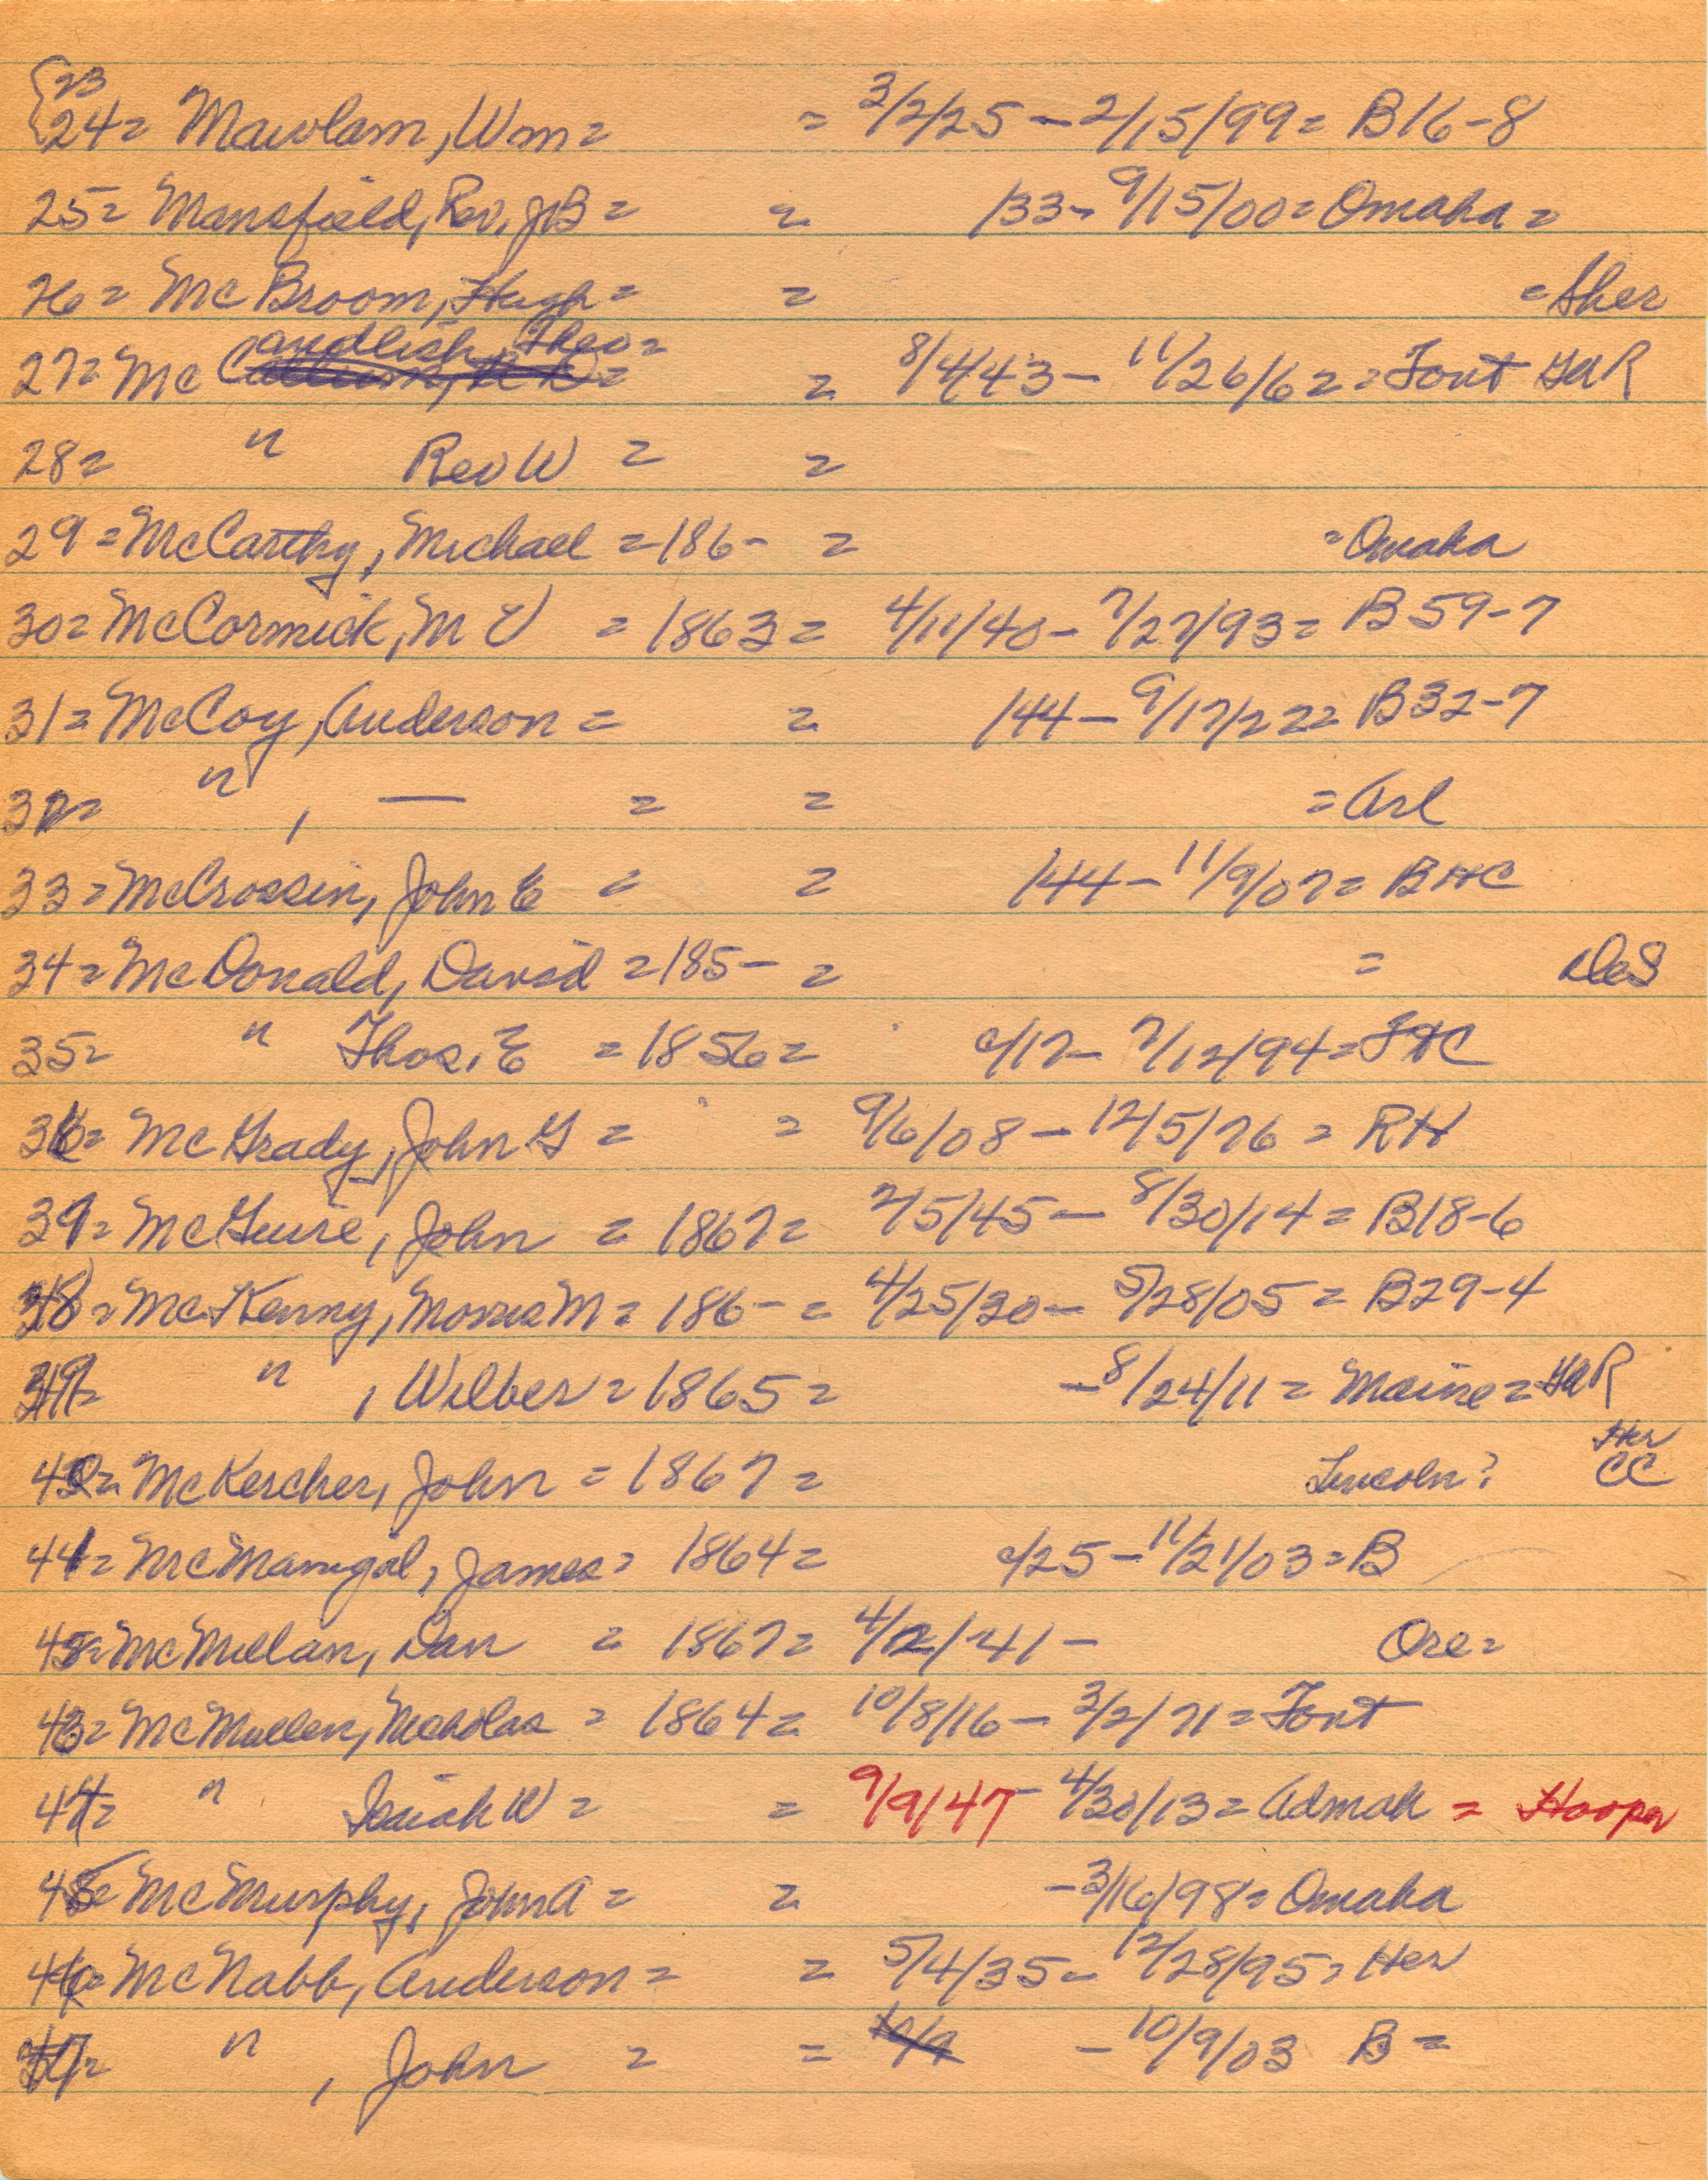 {23
24= Mawlam, Wm= = 3/2/25 - 2/15/99= B16-8
25= Mansfield, Rev. JB = = /33- 9/15/00= Omaha =
26= McBroom, Hugh= = = Sher
andlish, Theo=
27= Mc C = 8/4/43- 11/26/62= Font GAR
28= " Rev W = =
29 = McCarthy, Michael = 186- = = Omaha
30= McCormick, M V = 1863= 4/11/40- 7/27/93= B59-7
31= McCoy, Anderson = = /44- 9/17/22= B32-7
32= " , — = = = Arl
33= McCrossin, John E = = /44- 11/9/07= BHC
34= McDonald, David = 185- = = DeS
35= " Thos. E = 1856= c/17- 7/12/94= FHC
36= McGrady, John G = = 9/6/08 - 12/5/76 = RH
37= McGuire, John = 1867= 2/5/45- 8/30/14 = B18-6
38= McKenny, Morris M = 186- = 4/25/30- 5/28/05 = B29-4
39= " , Wilber = 1865= -8/24/11 = Maine = GAR
Her
40= McKercher, John = 1867 = Lincoln? CC
41= McManigal, James= 1864= c/25-11/21/03=B
42= McMillan, Dan = 1867= 4/12/41- Ore=
43= McMullen, Nicholas = 1864= 10/8/16- 3/2/71= Font
44= " Isaiah W = = 9/9/47- 4/30/13= Admah = Hooper
45= McMurphy, John A = = -3/16/98= Omaha
46= McNabb, Anderson= = 5/4/35- 12/28/95= Her
47= " , John = = 10/9 -10/9/03 B =